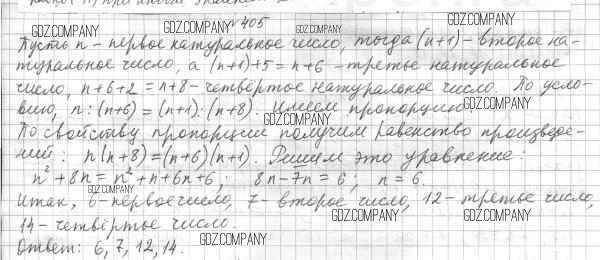 №405
Пусть n - первое натуральное число, тогда (n+1) - второе на-
туральное число, а (n+1)+5 = n+6 - третье натуральное
число, n+6+2 = n+8 - четвёртое натуральное число. По усло-
вию, n:(n+6) = (n+1):(n+8). Имеем пропорцию
По свойству пропорции получим равенство произведе-
ний: n(n+8) = (n+6)(n+1). Решим это уравнение:
n²+8n = n²+n+6n+6; 8n-7n=6; n=6.
Итак, 6-первое число, 7- второе число, 12- третье число,
14- четвёртое число.
Ответ: 6, 7, 12, 14.
GDZ.COMPANY
GDZ.COMPANY
GDZ.COMPANY
GDZ.COMPANY
GDZ.COMPANY
GDZ.COMPANY
GDZ.COMPANY
GDZ.COMPANY
GDZ.COMPANY
GDZ.COMPANY
GDZ.COMPANY